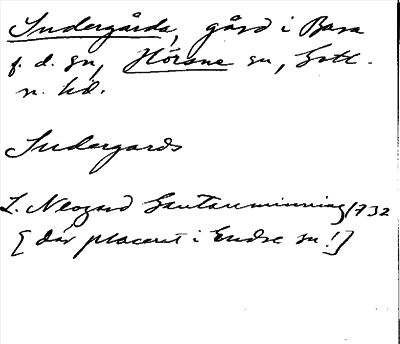 Sudergårda, gård i Bara
f. d. sn, Hörsne sn, Gotl.
n. hd.
Sudergards
L. Neogard Gautauminning 1732
[där placerat i Endre sn!]